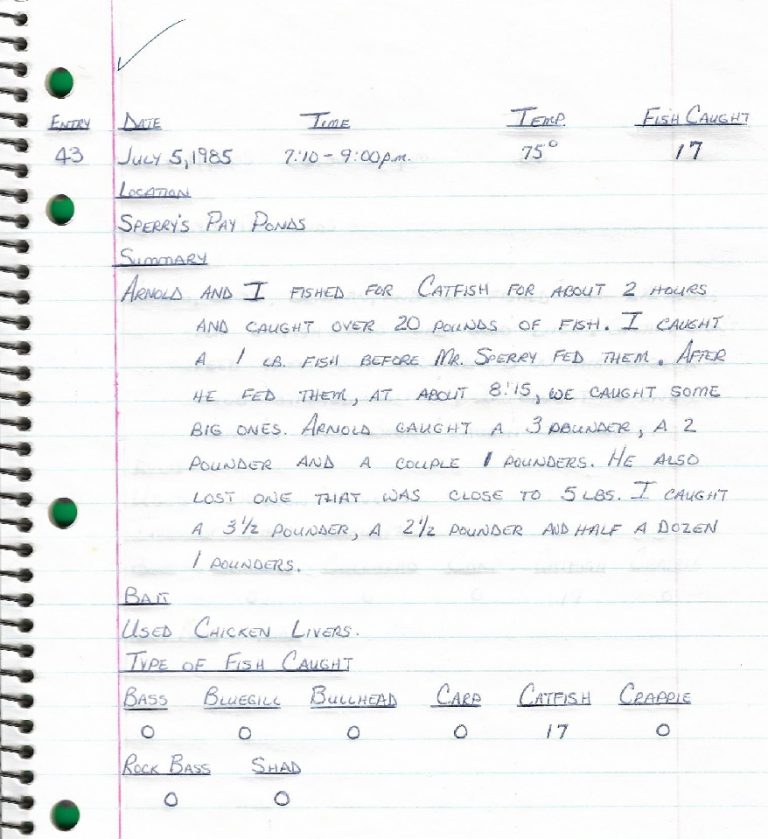 Entry Date Time Temp. Fish Caught
43 July 5, 1985 7:10 - 9:00 p.m. 75° 17
Location
Sperry's Pay Ponds
Summary
Arnold and I fished for Catfish for about 2 hours
and caught over 20 pounds of fish. I caught
a 1 lb. fish before Mr. Sperry fed them. After
he fed them, at about 8:15, we caught some
big ones. Arnold caught a 3 pounder, a 2
pounder and a couple 1 pounders. He also
lost one that was close to 5 lbs. I caught
a 3 1/2 pounder, a 2 1/2 pounder and half a dozen
1 pounders.
Bait
Used Chicken Livers.
Type of Fish Caught
Bass Bluegill Bullhead Carp Catfish Crappie
0 0 0 0 17 0
Rock Bass Shad
0 0